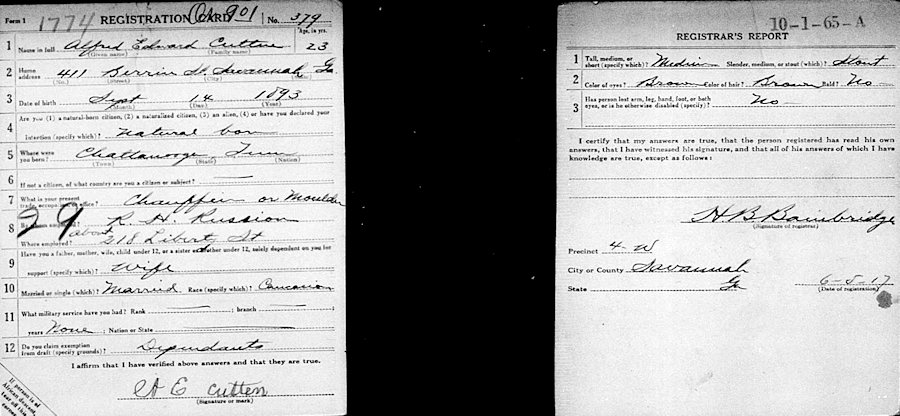 Form 1 1774 REGISTRATION CARD No. 379
Age, in yrs.
1 Name in full Alfred Edward Cutten 23
(Given name) (Family name)
2 Home address 411 Berrin St. Savannah Ga.
(No.) (Street) (City)
3 Date of birth Sept 14 1893
(Month) (Day) (Year)
4 Are you (1) a natural-born citizen, (2) a naturalized citizen, (3) an alien, (4) or have you declared your
intention (specify which)? Natural born
5 Where were you born? Chattanooga Tenn
(Town) (State) (Nation)
6 If not a citizen, of what country are you a citizen or subject?
7 What is your present trade, occupation, or office? Chauffeur or Moulder
8 By whom employed? R. H. Russion
29 about
Where employed? 218 Liberty St
9 Have you a father, mother, wife, child under 12, or a sister or brother under 12, solely dependent on you for
support (specify which)? Wife
10 Married or single (which)? Married Race (specify which)? Caucasion
11 What military service have you had? Rank ; branch
years None ; Nation or State
12 Do you claim exemption from draft (specify grounds)? Dependants
I affirm that I have verified above answers and that they are true.
A E Cutten
(Signature or mark)
If person is of
African descent,
tear off this
corner
10-1-65-A
REGISTRAR'S REPORT
1 Tall, medium, or short (specify which)? Medium Slender, medium, or stout (which)? Stout
2 Color of eyes? Brown Color of hair? Brown Bald? No
3 Has person lost arm, leg, hand, foot, or both eyes, or is he otherwise disabled (specify)? No
I certify that my answers are true, that the person registered has read his own
answers, that I have witnessed his signature, and that all of his answers of which I have
knowledge are true, except as follows:
H. B. Bainbridge
(Signature of registrar)
Precinct 4 W
City or County Savannah
State Ga 6-5-17
(Date of registration)